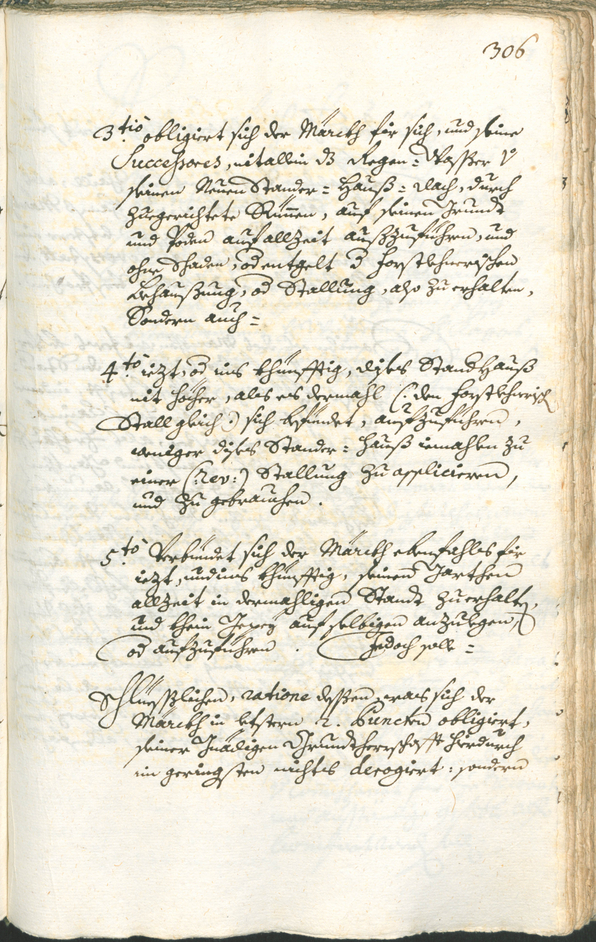 306
3tio obligiert sich der Märckh für sich, und seine
Successores, nit allein dz Regen= Wasser v
seinen Neuen Stander= Hauß= Dach, durch
zuegerichtete Rinnen, auf seinen Grundt
und Poden auf allzeit außzuführen, und
ohne Schaden, od entgelt d Forstlehnerischen
Behaußung, od Stallung, also zu erhalten,
Sondern auch=
4to iezt, od ins khünfftig, dises Standhauß
nit höcher, alß es dermahl (: den Forstlehnerisch
Stall gleich :) sich befindet, aufzuführen,
weniger dises Stander= Hauß iemahlen zu
einer (: rev: ) Stallung zu applicieren,
und zu gebrauchen.
5to Verbindet sich der Märckh ebenfahls für
iezt, und ins khünfftig, seinen Garthen
allzeit in dermahligen Standt zu erhalten,
und khein auf selbigen anzulegen,
od aufzuführen. Jedoch solle=
Schlüeßlichen, ratione dessen, was sich der
Märckh in lestern 2. Puncten obligiert,
seiner Gnädigen Grundtherrschafft hierdurch
im geringsten nichts derogiert: sondern